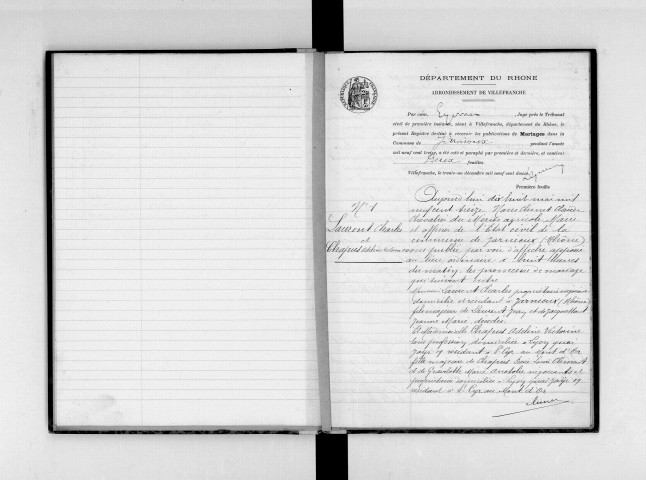 DÉPARTEMENT DU RHONE
ARRONDISSEMENT DE VILLEFRANCHE
Par nous, Juge près le Tribunal
civil de première instance, séant à Villefranche, département du Rhône, le
présent Registre destiné à recevoir les publications de Mariages dans la
Commune de Jarnioux pendant l'année
mil neuf cent treize, a été coté et paraphé par première et dernière, et contient
Deux feuilles.
Villefranche, le trente-un décembre mil neuf cent douze.
Première feuille
N° 1
Laurent Charles
et
Chapus Adeline Victorine
Aujourd'hui dix huit mai mil
neuf cent treize Nous
Chevalier du Mérite agricole Maire
et officier de l'Etat civil de la
commune de Jarnioux (Rhône)
avons publié par voie d'affiche apposée
au lieu ordinaire à huit heures
du matin, les promesses de mariage
qui suivent entre
Monsieur Laurent Charles propriétaire
domicilié et résidant à Jarnioux (Rhône)
fils majeur de Laurent Jean et de
Jeanne Marie
Et Mademoiselle Chapus Adeline Victorine
sans profession domiciliée à Lyon quai
19 résidant à St Cyr au Mont d'Or
fille majeure de Chapus
et de Marie négociants et
propriétaires domiciliés à Lyon quai 19
résidant à St Cyr au Mont d'Or